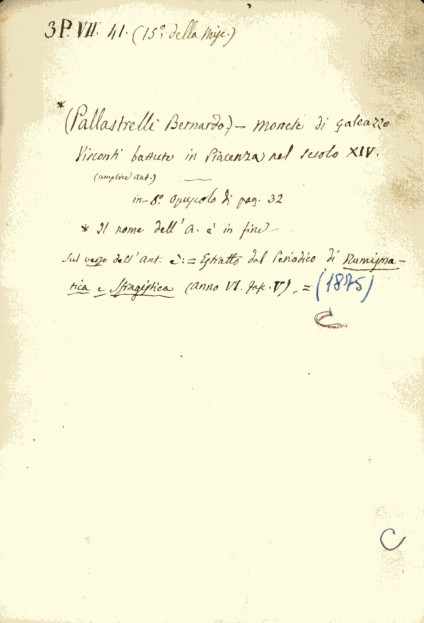 3P. VII. 41. (15º della Misc.)
*(Pallastrelli Bernardo) - Monete di Galeazzo
Visconti battute in Piacenza nel secolo XIV.
(semplice ant.)
in-8º opuscolo di pag. 32
* Il nome dell'A. è in fine -
Sul verso dell'Ant. è: = Estratto dal Periodico di Numisma-
tica e Sfragistica (anno VI. fasc. V). = (1875)
C
C